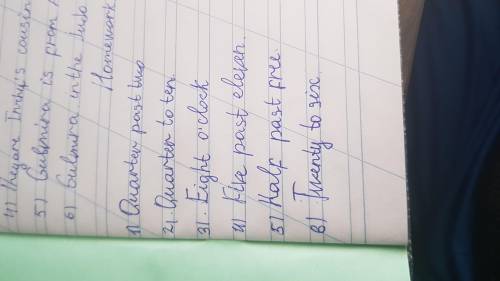 4) They are Inky's cousin
5) Gulmira is from
6) Gulmira in the
Homework
1) Quarter past two
2) Quarter to ten.
3) Eight o'clock
4) Five past eleven.
5) Half past free.
6) Twenty to six